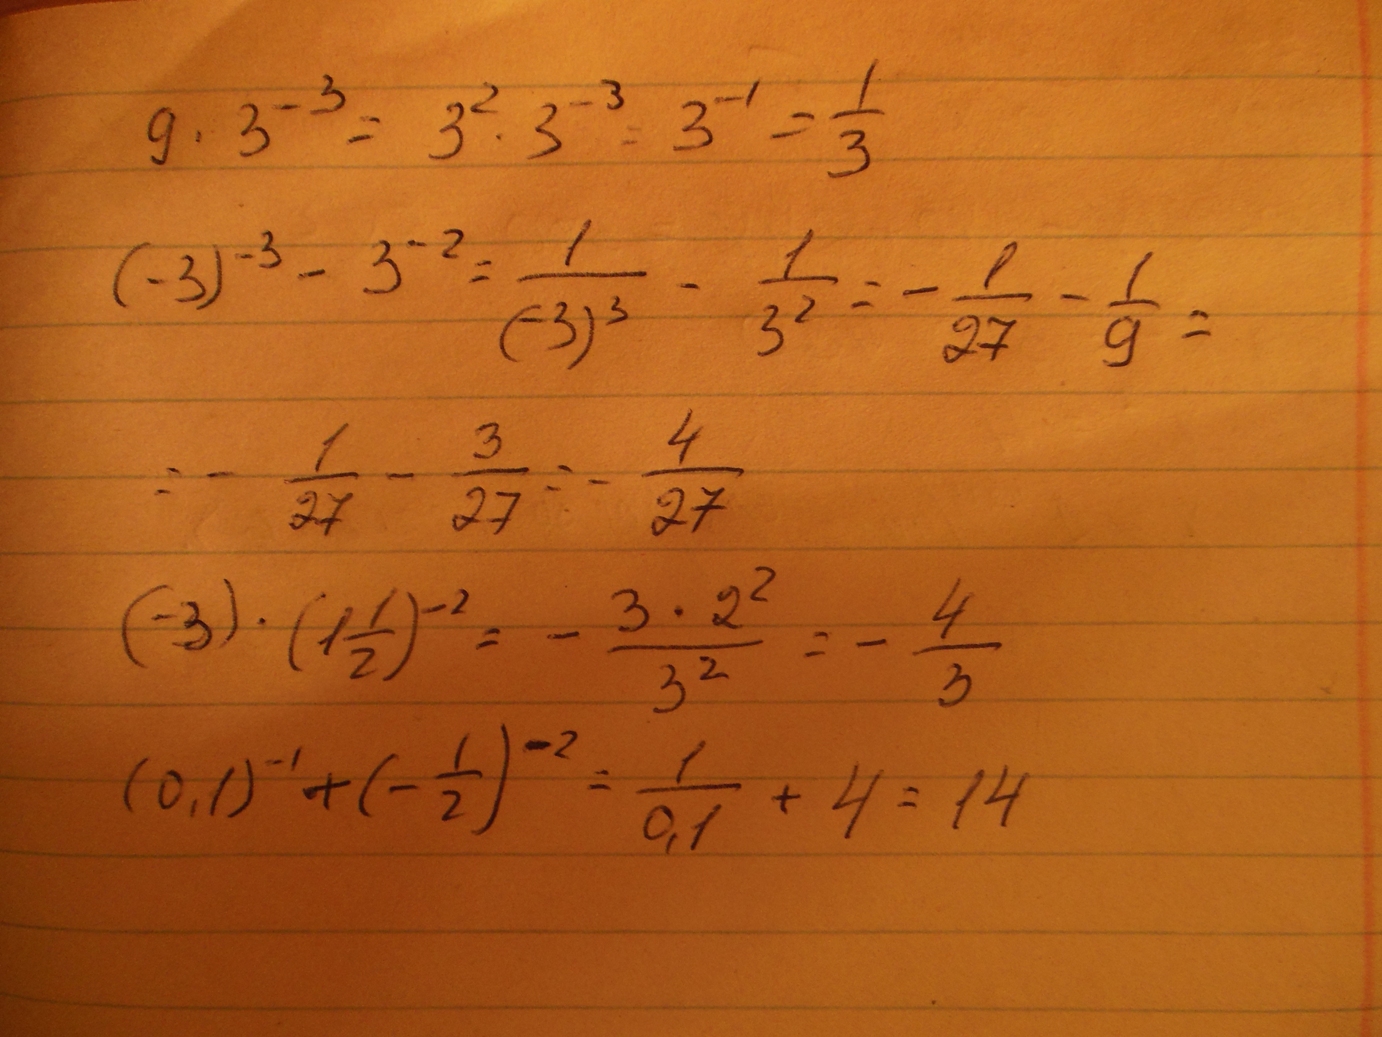 9 · 3⁻³ = 3² · 3⁻³ = 3⁻¹ = 1/3
(-3)⁻³ - 3⁻² = 1/(-3)³ - 1/3² = - 1/27 - 1/9 =
= - 1/27 - 3/27 = - 4/27
(-3) · (1 1/2)⁻² = - (3 · 2²)/3² = - 4/3
(0,1)⁻¹ + (- 1/2)⁻² = 1/0,1 + 4 = 14